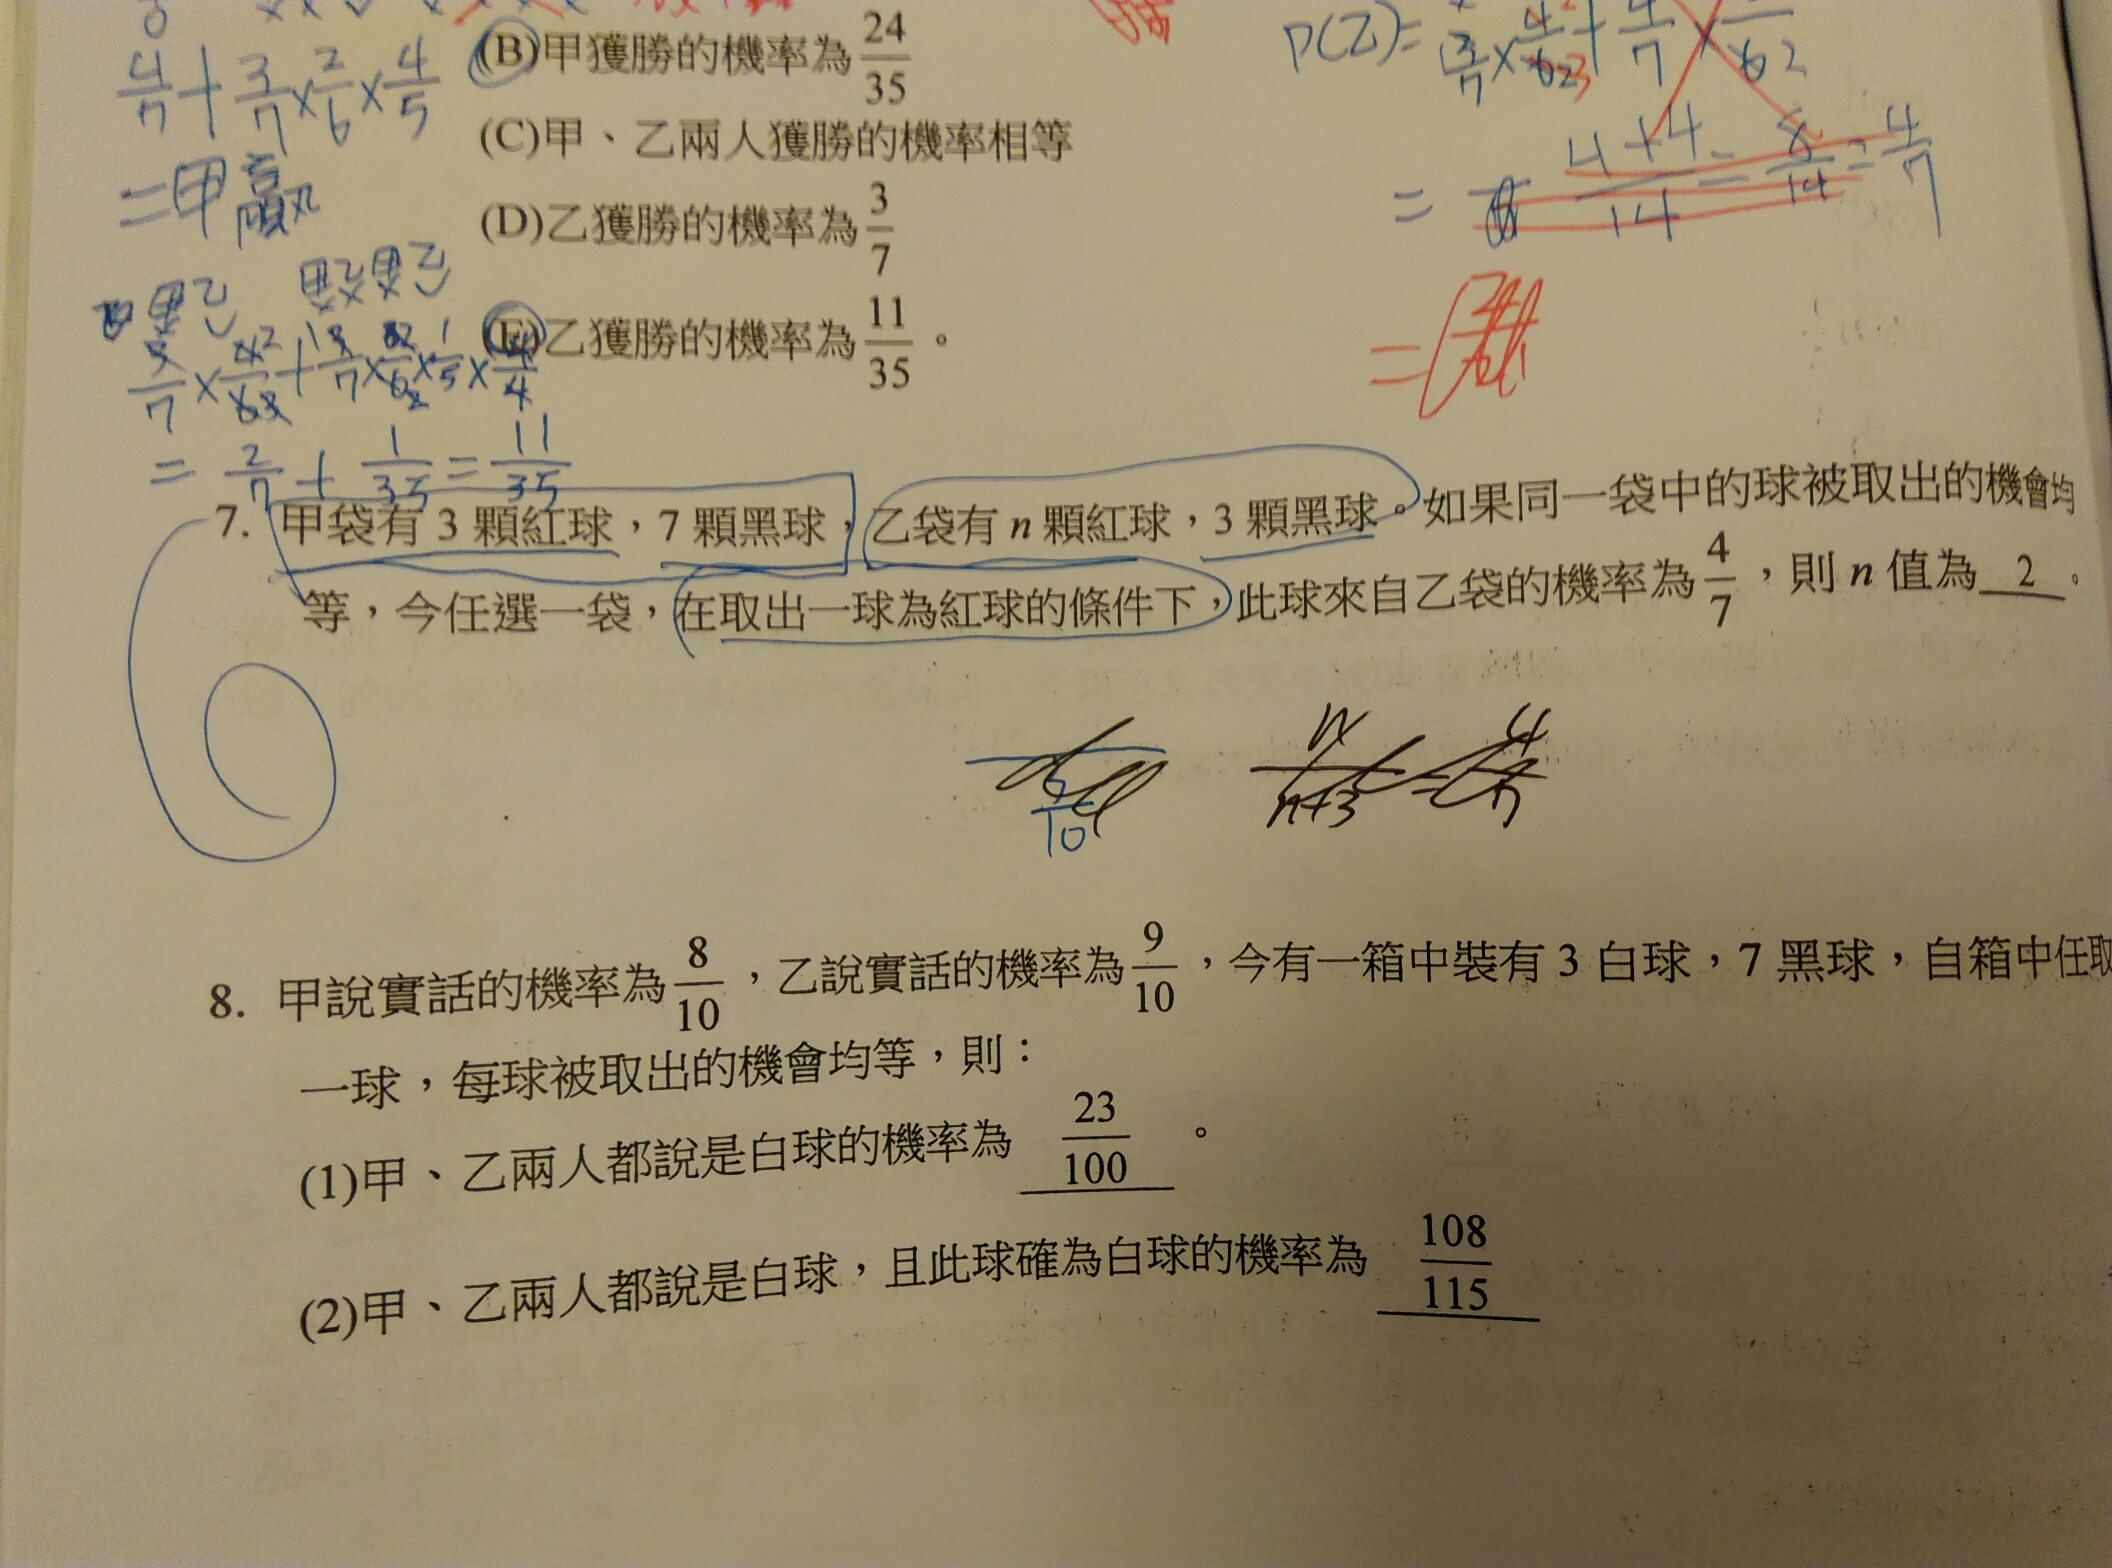 (B)甲獲勝的機率為 24/35
(C)甲、乙兩人獲勝的機率相等
(D)乙獲勝的機率為 3/7
(E)乙獲勝的機率為 11/35 。
4/7 + 3/7 × 2/6 × 4/5
=甲贏
= 2/7 + 1/35 = 11/35
P(乙)=
= 4+4/14 = 8/14 = 4/7
7. 甲袋有 3 顆紅球，7 顆黑球，乙袋有 n 顆紅球，3 顆黑球。如果同一袋中的球被取出的機會均
等，今任選一袋，在取出一球為紅球的條件下，此球來自乙袋的機率為 4/7 ，則 n 值為 2 。
3/10
n/n+3 = 4/7
8. 甲說實話的機率為 8/10 ，乙說實話的機率為 9/10 ，今有一箱中裝有 3 白球，7 黑球，自箱中任取
一球，每球被取出的機會均等，則：
(1)甲、乙兩人都說是白球的機率為 23/100 。
(2)甲、乙兩人都說是白球，且此球確為白球的機率為 108/115